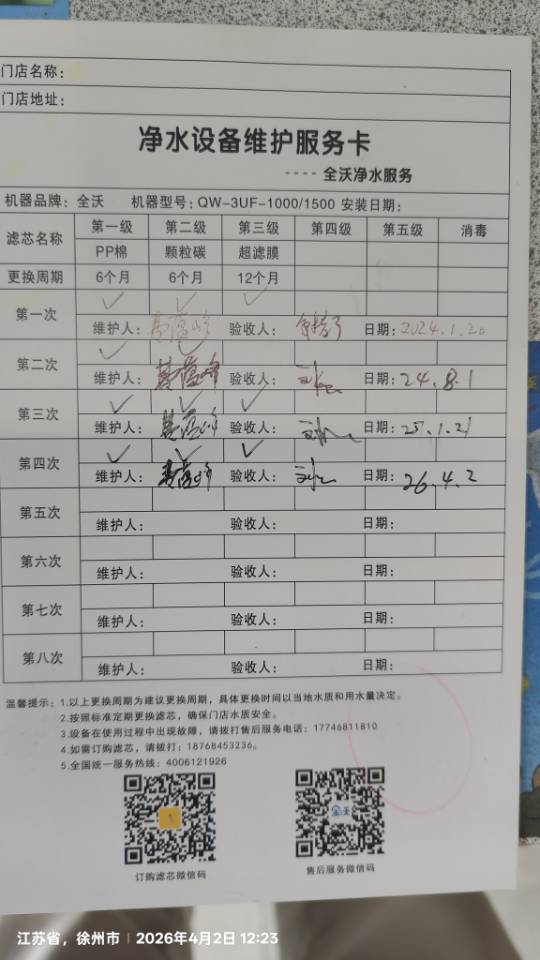 门店名称：
门店地址：
净水设备维护服务卡
---- 全沃净水服务
机器品牌：全沃 机器型号：QW-3UF-1000/1500 安装日期：
滤芯名称 第一级 第二级 第三级 第四级 第五级 消毒
PP棉 颗粒碳 超滤膜
更换周期 6个月 6个月 12个月
第一次 ✓ ✓ ✓
维护人： 验收人： 日期：2024.1.20
第二次 ✓ ✓
维护人： 验收人： 日期：24.8.1
第三次 ✓ ✓ ✓
维护人： 验收人： 日期：25.1.21
第四次 ✓ ✓ ✓
维护人： 验收人： 日期：26.4.2
第五次
维护人： 验收人： 日期：
第六次
维护人： 验收人： 日期：
第七次
维护人： 验收人： 日期：
第八次
维护人： 验收人： 日期：
温馨提示：1.以上更换周期为建议更换周期，具体更换时间以当地水质和用水量决定。
2.按照标准定期更换滤芯，确保门店水质安全。
3.设备在使用过程中出现故障，请拨打售后服务电话：17746811810
4.如需订购滤芯，请拨打：18768453236。
5.全国统一服务热线：4006121926
全沃
订购滤芯微信码 售后服务微信码
江苏省，徐州市 | 2026年4月2日 12:23